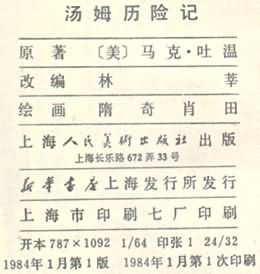 汤姆历险记
原著 〔美〕马克·吐温
改编 林 莘
绘画 隋奇 肖田
上海人民美術出版社出版
上海长乐路672弄33号
新华書店上海发行所发行
上海市印刷七厂印刷
开本787×1092 1/64 印张1 24/32
1984年1月第1版 1984年1月第1次印刷